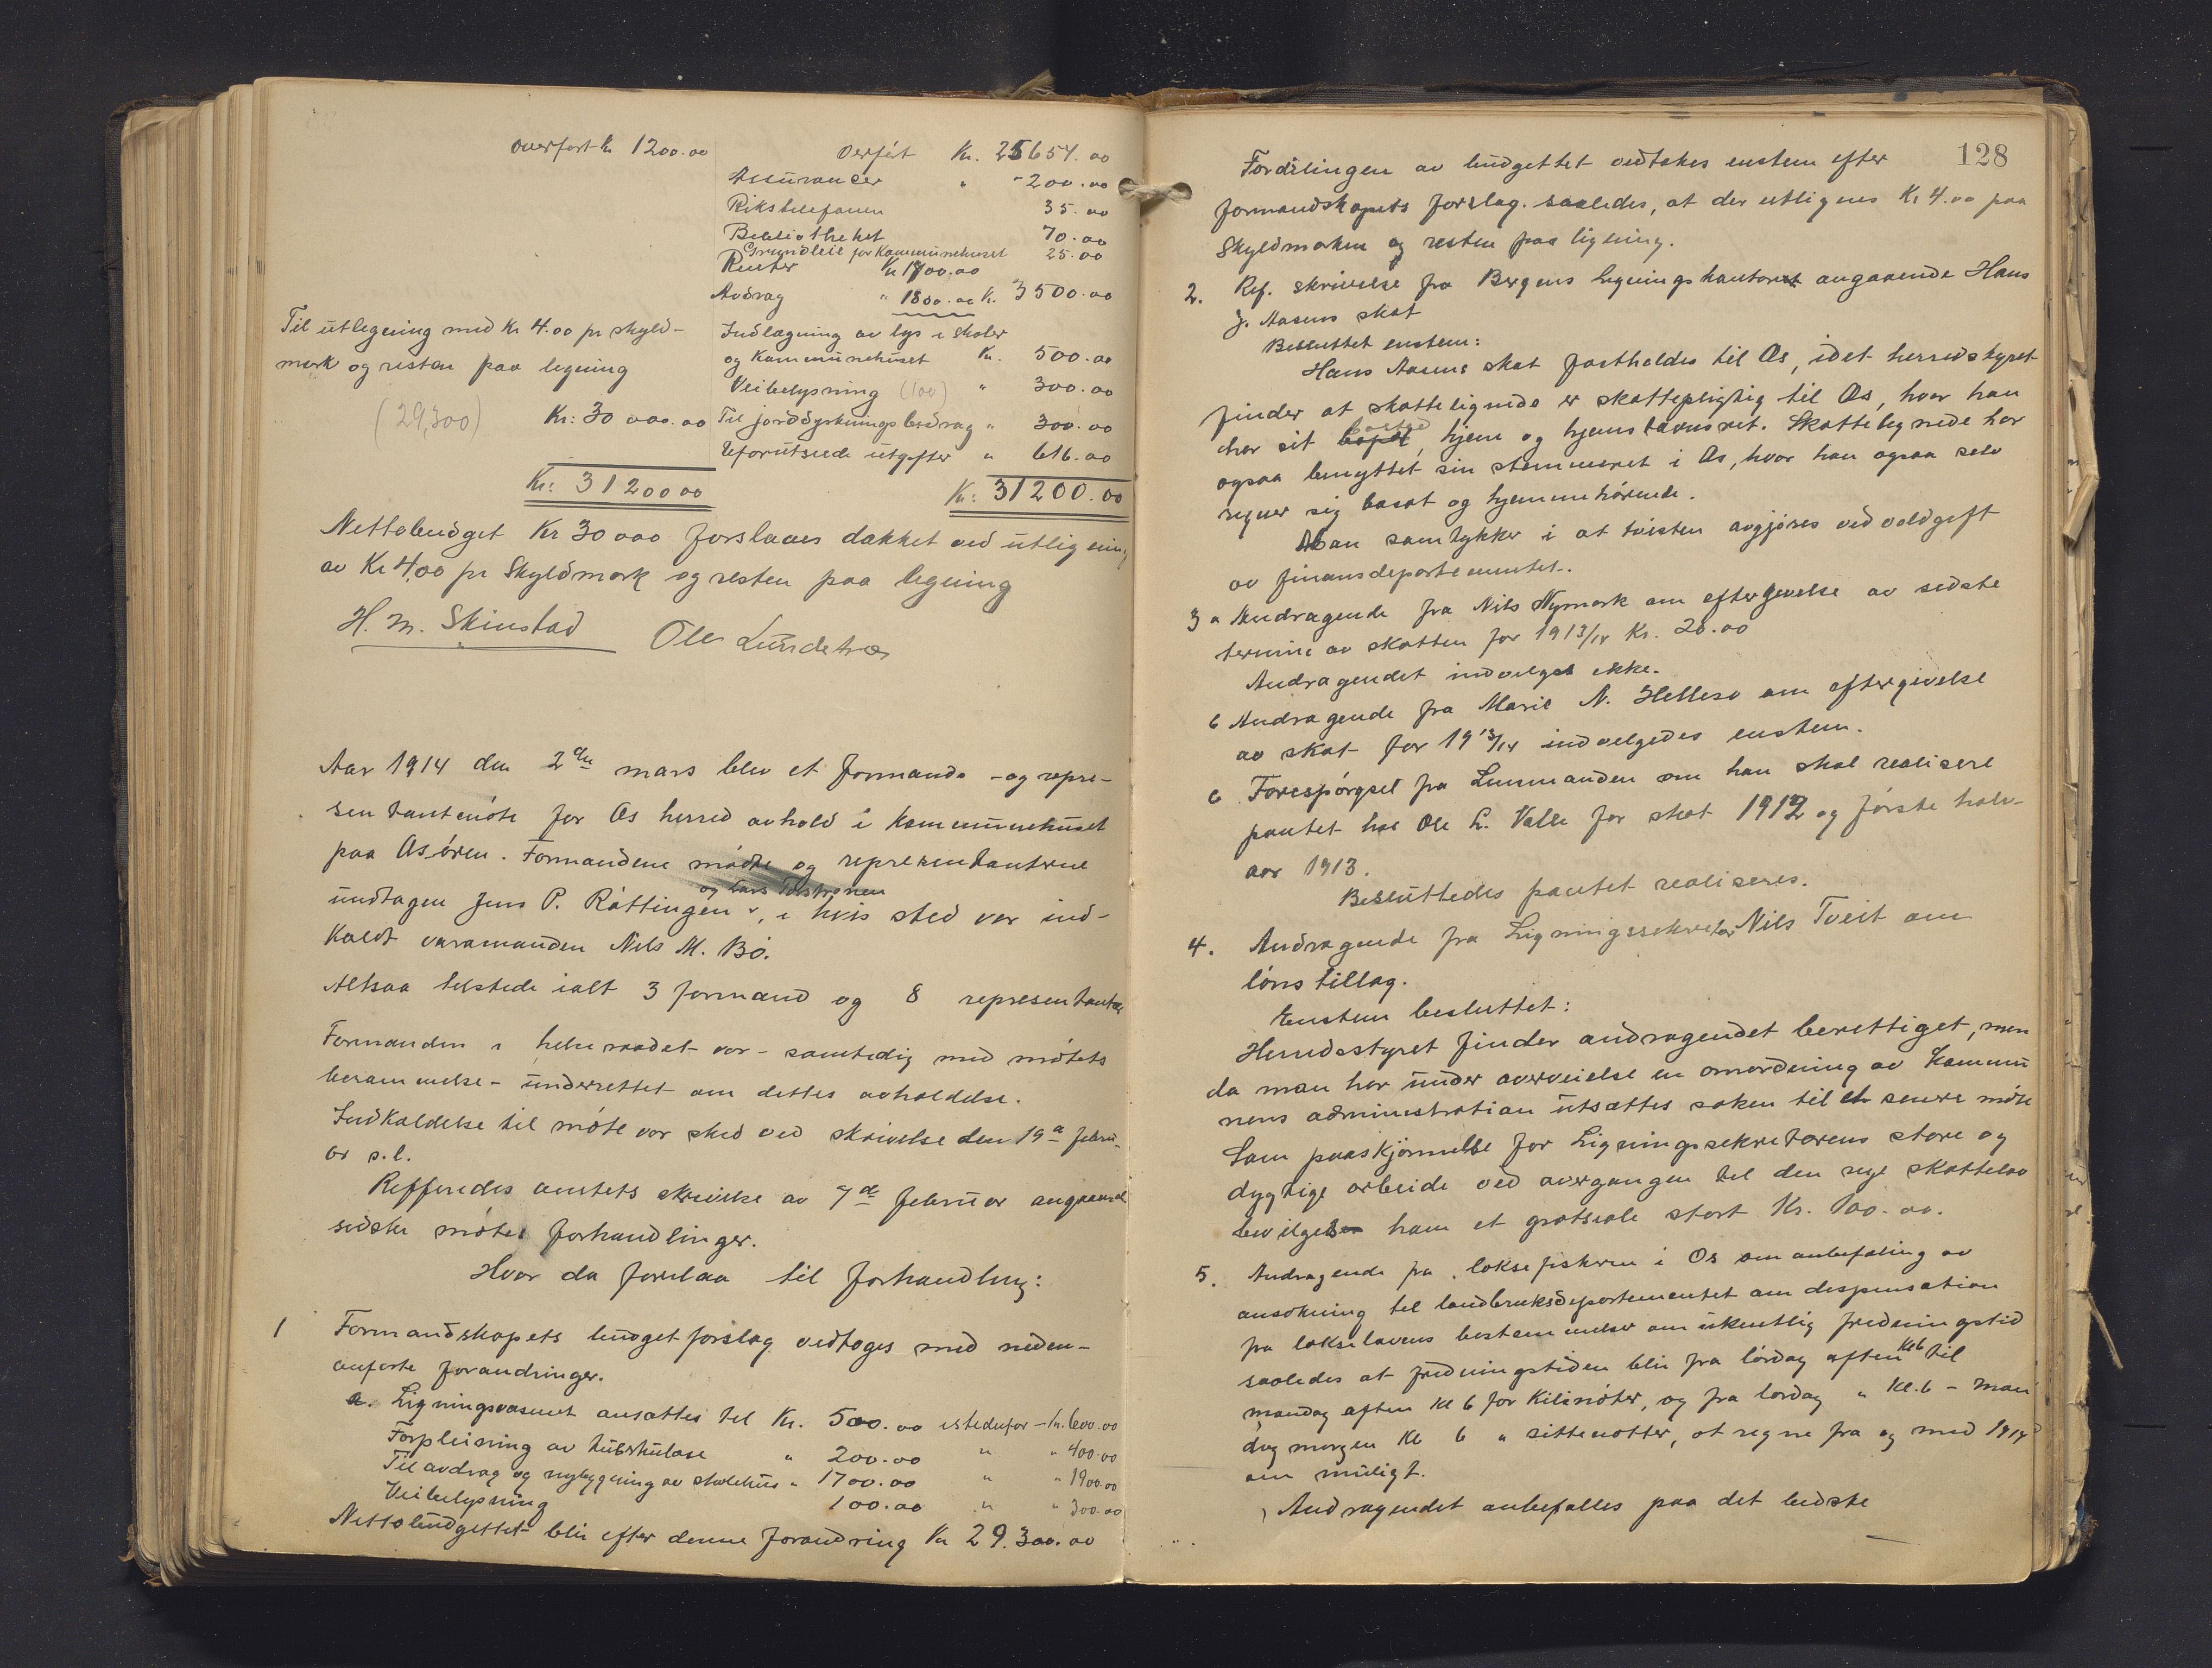 overført kr 1200.00
Overført Kr. 25654.00
Assurancer " - 200.00
Rikstelefonen 35.00
Bibliotheket 70.00
Grundleie for Kommunehuset 25.00
Renter Kr 1700.00
Avdrag " 1800.00 Kr. 3500.00
Til utlegning med Kr 4.00 pr skyld-
mark og resten paa legning
(29,300) Kr: 30 000.00
Kr: 31200 00
Indlægning av lys i skoler
og Kommunehuset Kr. 500.00
Veibelysning (100) " 300.00
Til jorddyrknings bidrag " 300.00
Uforutseede utgifter " 616.00
Kr: 31200.00
Nettobudget Kr 30 000 forslaaes dækket ved utligning
av Kr 4,00 pr Skyldmark og resten paa legning
H. M. Skinstad Ole Lundetræ
Aar 1914 den 2den mars blev et formands- og repre-
sentantmöte for Os herred avhold i Kommunehuset
paa Osøren. Formandene mødte og representanterne
undtagen Jens P. Røttingen og Lars Tøsstrønen, i hvis sted var ind-
kaldt varamanden Nils M. Bö.
Altsaa tilstede ialt 3 formænd og 8 representanter
Formanden i helseraadet var - samtidig med mötets
berammelse - underrettet om dettes avholdelse.
Indkaldelse til möte var sked ved skrivelse den 19de febru-
ar s.l.
Refferedes amtets skrivelse av 7de februar angaaende
sidste mötes forhandlinger.
Hvor da forelaa til forhandling:
1 Formandskapets budgetforslag vedtoges med neden-
anførte forandringer.
a. Ligningsvæsenet ansættes til Kr. 500.00 istedenfor - kr. 600.00
Forpleining av tuberkuløse " 200.00 " " 400.00
Til avdrag og nybygning av skolehus " 1700.00 " " 1900.00
Veibelysning 100.00 " " 300.00
Nettobudgettet blir efter denne forandring Kr 29.300.00
128
Fordelingen av budgettet vedtokes enstem efter
formandskapets forslag. saaledes, at der utlignes Kr 4.00 paa
Skyldmarken og resten paa ligning.
2. Ref. skrivelse fra Bergens ligningskontoret angaaende Hans
J. Aasens skat
Besluttet enstem:
Hans Aasens skat fastholdes til Os, idet herredstyret
finder at skattelignede er skattepligtig til Os, hvor han
har sit bopæl bosted, hjem og hjemstavnsret. Skattelignede har
ogsaa benyttet sin stemmeret i Os, hvor han ogsaa selv
regner sig bosat og hjemmehörende.
Man samtykker i at tvisten avgjöres ved voldgift
av finansdepartementet.
3 a Andragende fra Nils Nymark om eftergivelse av sidste
termin av skatten for 1913/14 Kr. 20.00
Andragendet indvilges ikke.
b Andragende fra Marie N. Hellesø om eftergivelse
av skat for 1913/14 indvelgedes enstem.
c Forespörgsel fra Lensmanden om han skal realisere
pantet hos Ole L. Valle for skat 1912 og förste halv-
aar 1913.
Besluttedes pantet realiseres.
4. Andragende fra Ligningssekretær Nils Tveit om
lönstillæg.
Enstem besluttet:
Herredsstyret finder andragendet berettiget, men
da man har under overveielse en omordning av kommu
nens administration utsættes saken til et senere möte
Som paaskjönnelse for Ligningssekretærens store og
dygtige arbeide ved overgangen til den nye skattelov
bevilges ham et gratiale stort Kr. 100.00.
5. Andragende fra laksefiskere i Os om anbefaling av
ansökning til landbruksdepartementet om dispensation
fra lakselovens bestemmelser om ukentlig fredningstid
saaledes at fredningstiden blir fra lördag aften Kl 6 til
mandag aften Kl 6 for Kilenöter, og fra lördag " Kl. 6 - man
dag morgen Kl 6 " sittenotter, at regne fra og med 1914
om muligt.
Andragendet anbefalles paa det bedste